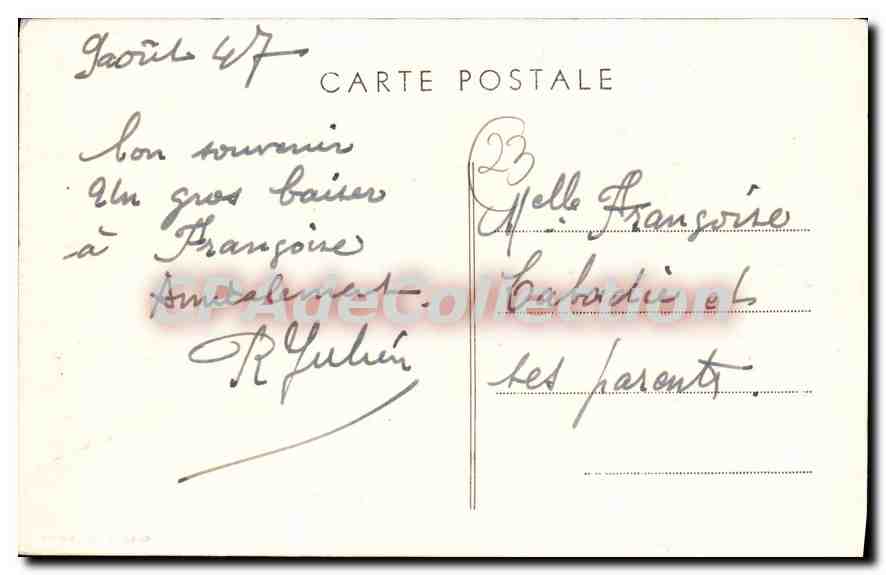 9 août 47
CARTE POSTALE
bon souvenir
Un gros baiser
à Françoise
Amicalement.
R Julien
23
Melle Françoise
Cabadie et
ses parents.
CPAdeCollection